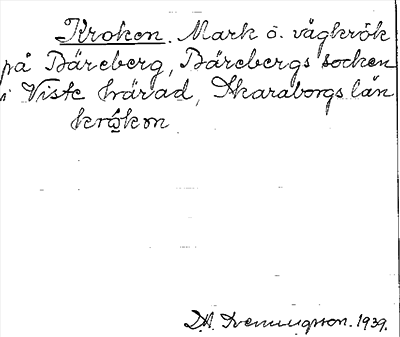 Kroken. Mark o. vägkrök
på Bäreberg, Bärebergs socken
i Viste härad, Skaraborgs län
krökən
D.A. Svenungsson. 1939.